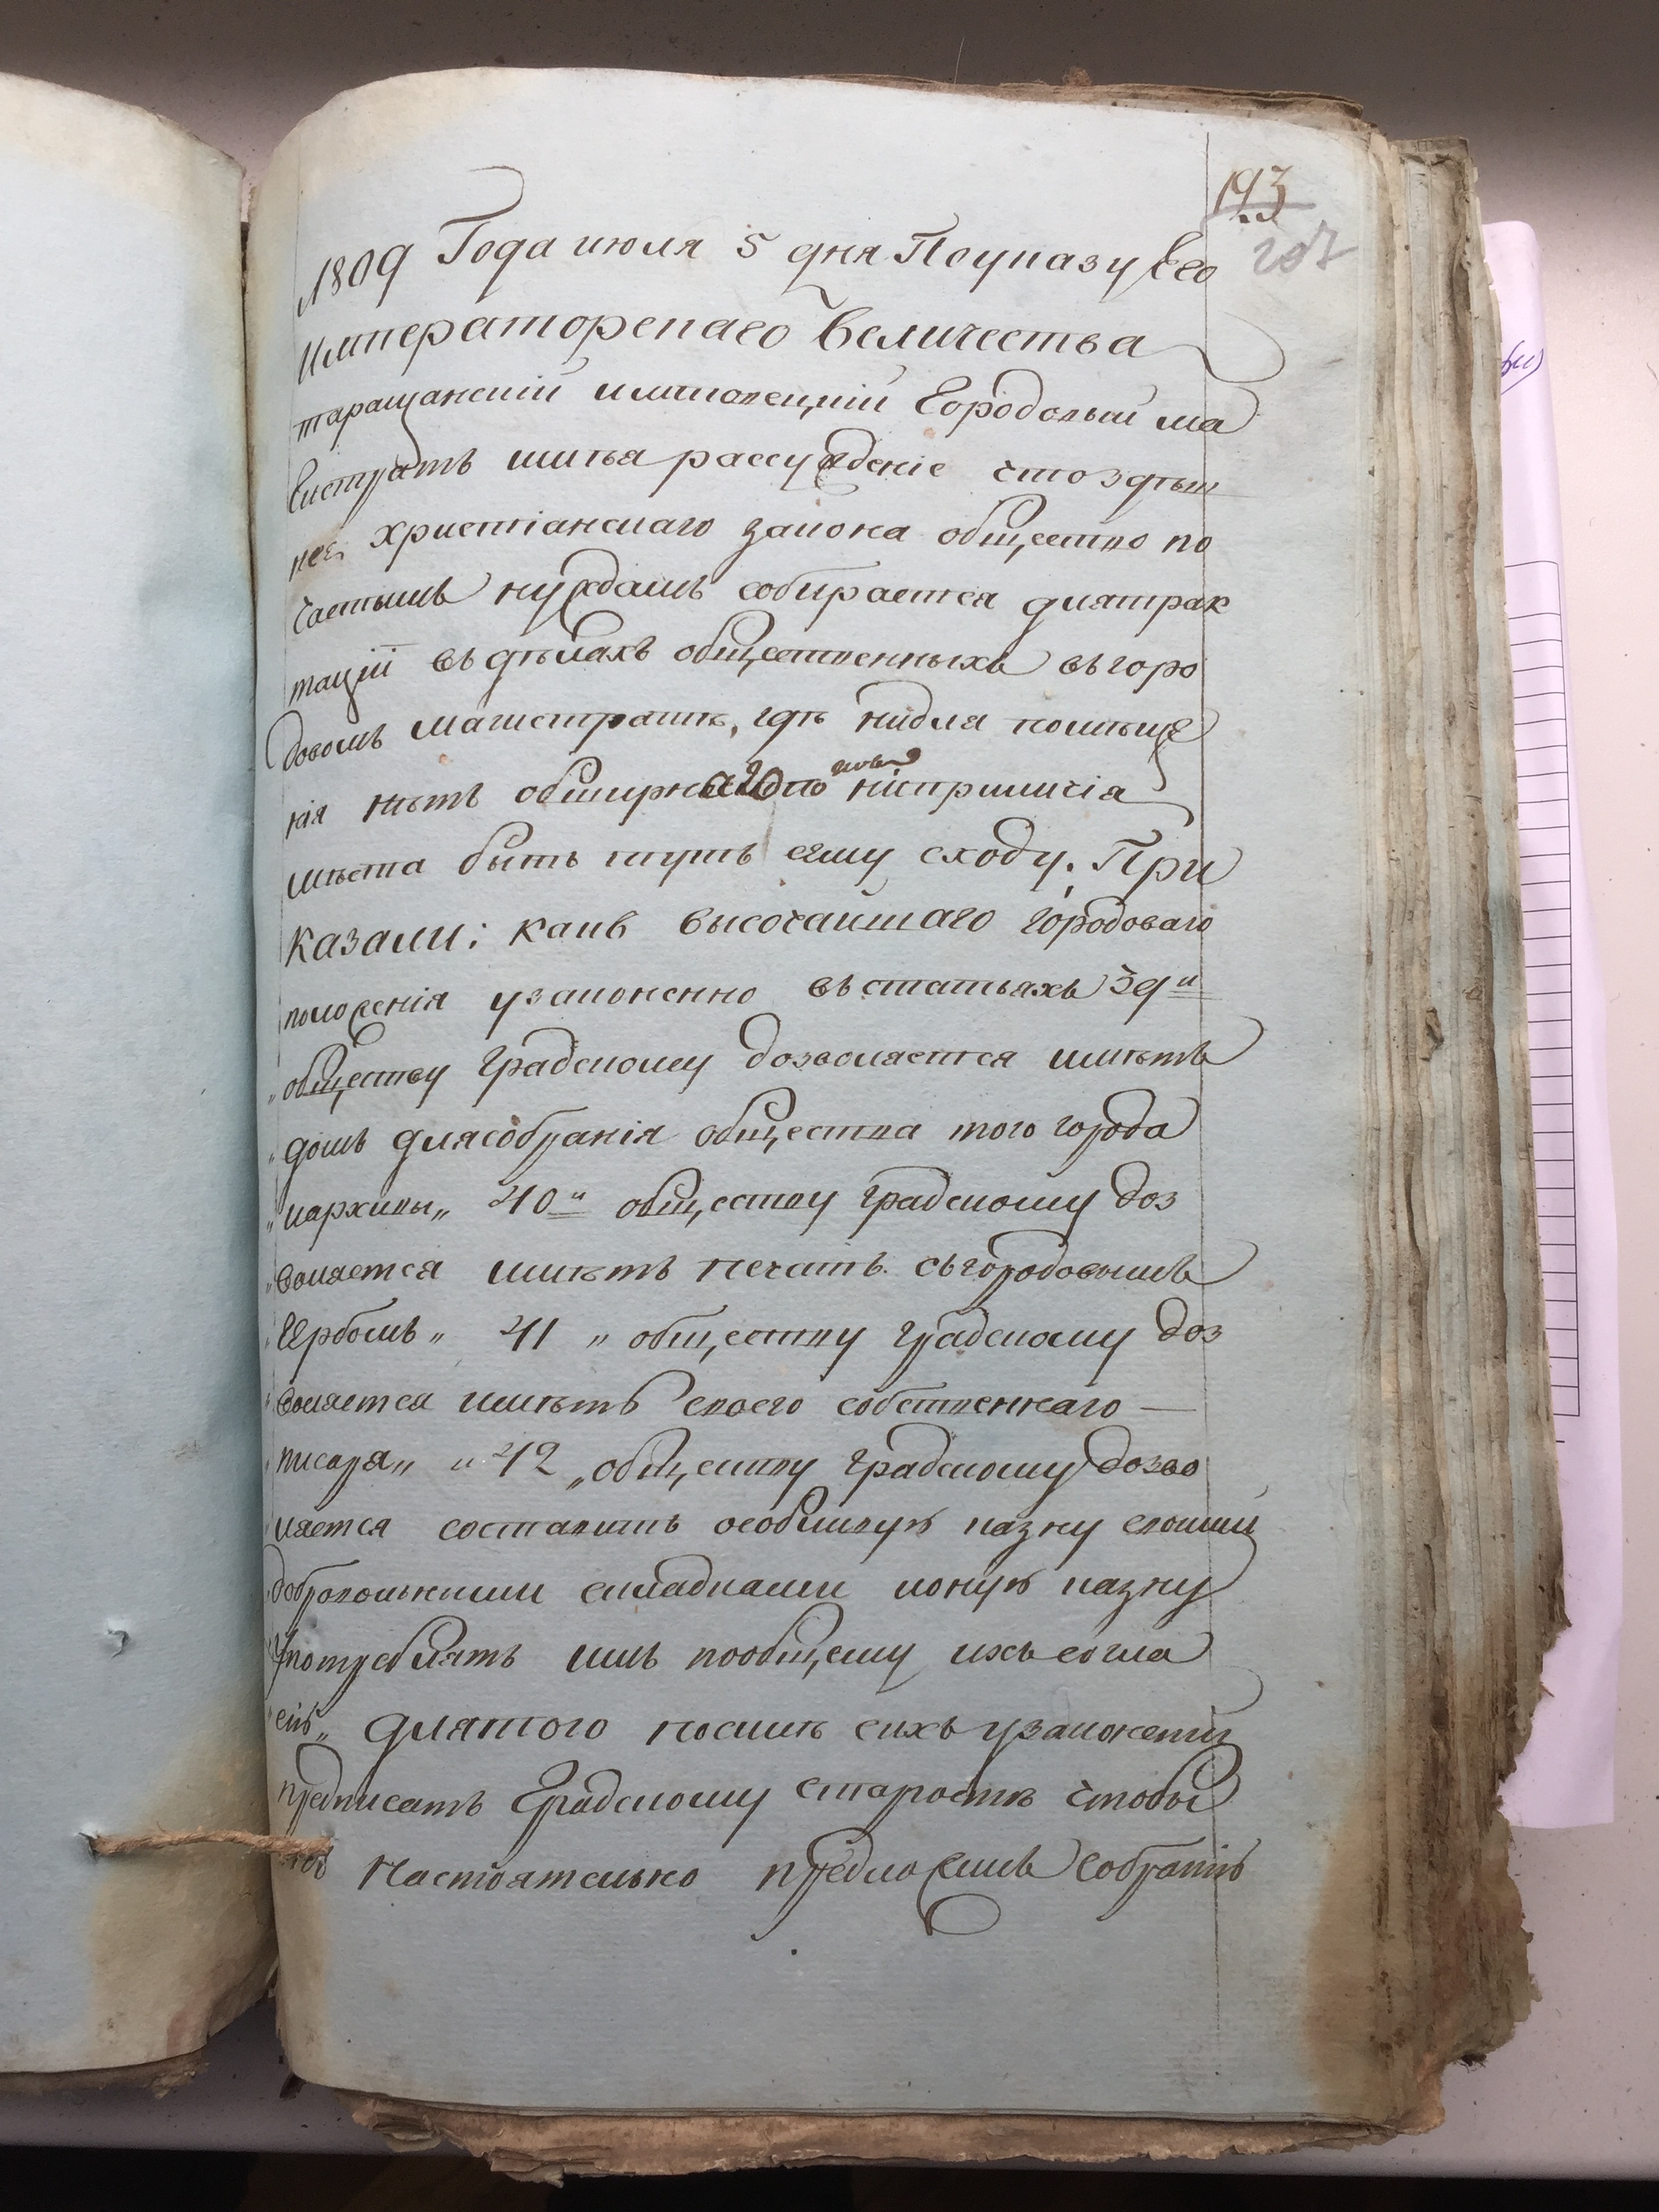 193
207
1809 Года июля 5 дня Поуказу Его
Императорскаго Величества
таращанскій Городовый ма
гистратъ имѣя разсужденіе что здѣш
нее христіанскаго закона общество по
частымъ нуждамъ собирается длятрак
таціи въ дѣлахъ общественныхъ въ горо
довомъ магистратѣ, гдѣ помѣще
нія нѣтъ обширнаго по неприличія
мѣста быть тутъ сему сходу. При
казали: какъ высочайшаго городоваго
положенія узаконенно въ статьяхъ 39й
„обществу градскому дозволяется имѣть
„домъ длясобранія общества того города
„иархивы„ 40й обществу градскому доз
„воляется имѣть печать съ городовымъ
„гербомъ„ 41 „обществу градскому доз
„воляется имѣть своего собственнаго —
„писаря„ и 42 „обществу градскому дозво
„ляется составить особливую казну своими
„добровольными складками ионую казну
„употреблять имъ пообщему ихъ согла
„сію„ длятого посилѣ сихъ узаконеніи
предписать Градскому старостѣ чтобы
настоятельно предложилъ собрать